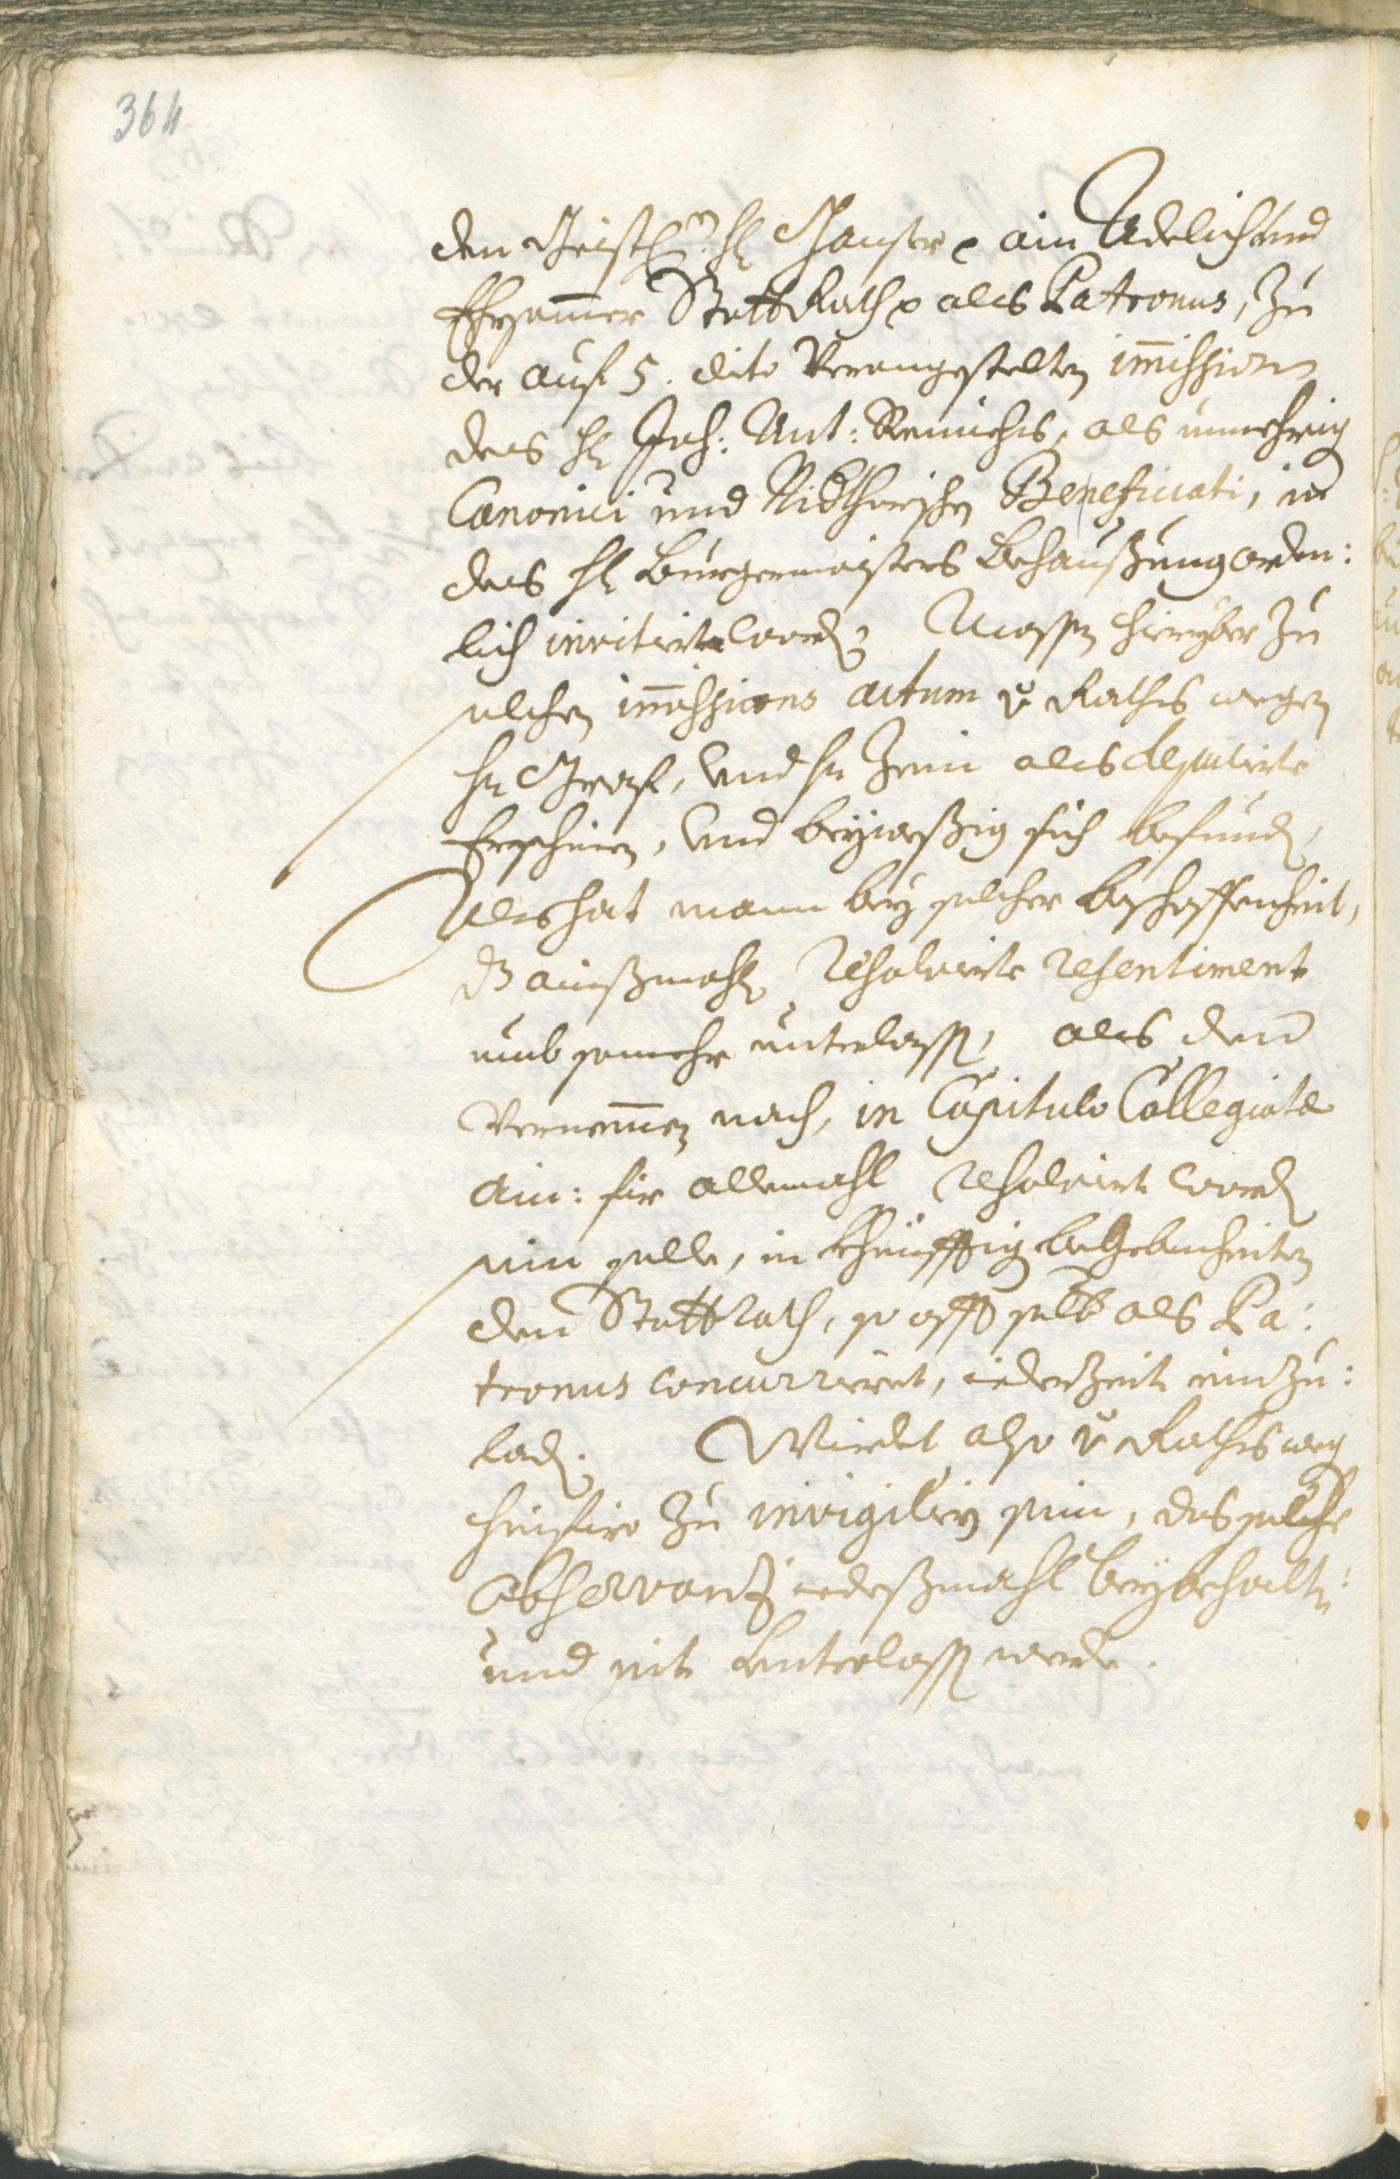 364
den Geistl: H: Ganser ain Adelich und
Ehrsammer StattRath als Patronus, zu
der auf 5. dito Verangestelten im̄ission
des H: Joh: Ant: als nunmehrig
Canonici und Beneficiati, in
des H: Burgermaisters Behaußung orden:
lich invitirt word; Massen hieryber zu
solchen im̄issions actum v Raths wegen
Hr Graf, und Hr als deputirte
Erschinen, und beywesßig sich befund,
Als hat mann bey solcher beschaffenheit,
dß ainßmahl resolvirte resentiment
umb somehr unterlass, als dem̄
Vernem̄en nach, in Capitulo Collegiatæ
ain: für allemahl resolvirt word
sein solle, in khünfftig begebenheiten
den Stattrath, so offt selb als Pa:
tronus concurrirt, iederzeit einzu:
lad. Wirdet also v Raths weg
hinfüro zu invigilirn sein, das solche
observanz iedeßmahl beybehaltn:
und nit unterlass werde.